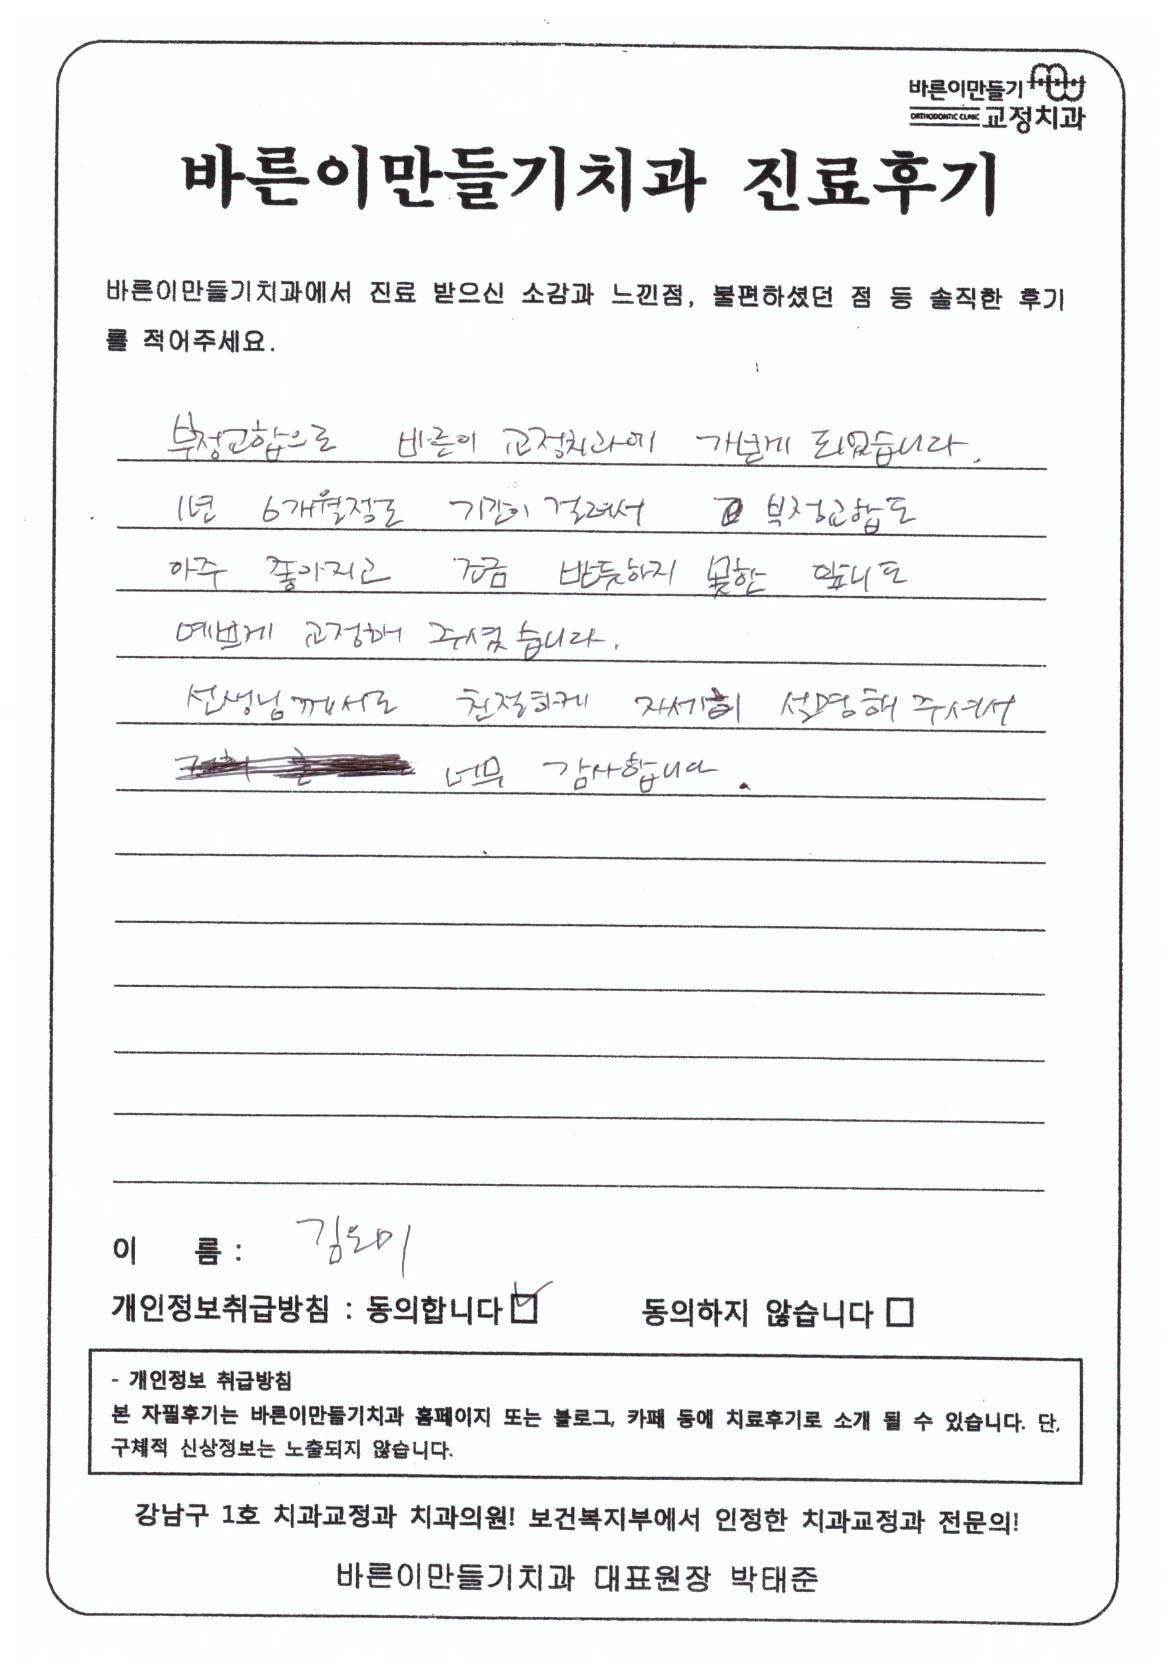 바른이만들기
ORTHODONTIC CLINIC 교정치과
바른이만들기치과 진료후기
바른이만들기치과에서 진료 받으신 소감과 느낀점, 불편하셨던 점 등 솔직한 후기
를 적어주세요.
부정교합으로 바른이 교정치과에 가보게 되었습니다.
1년 6개월정도 기간이 걸려서 부정교합도
아주 좋아지고 조금 반듯하지 못한 앞니도
예쁘게 교정해 주셨습니다.
선생님께서도 친절하게 자세히 설명해 주셔서
너무 감사합니다.
이 름 :
개인정보취급방침 : 동의합니다 동의하지 않습니다
- 개인정보 취급방침
본 자필후기는 바른이만들기치과 홈페이지 또는 블로그, 카페 등에 치료후기로 소개 될 수 있습니다. 단,
구체적 신상정보는 노출되지 않습니다.
강남구 1호 치과교정과 치과의원! 보건복지부에서 인정한 치과교정과 전문의!
바른이만들기치과 대표원장 박태준